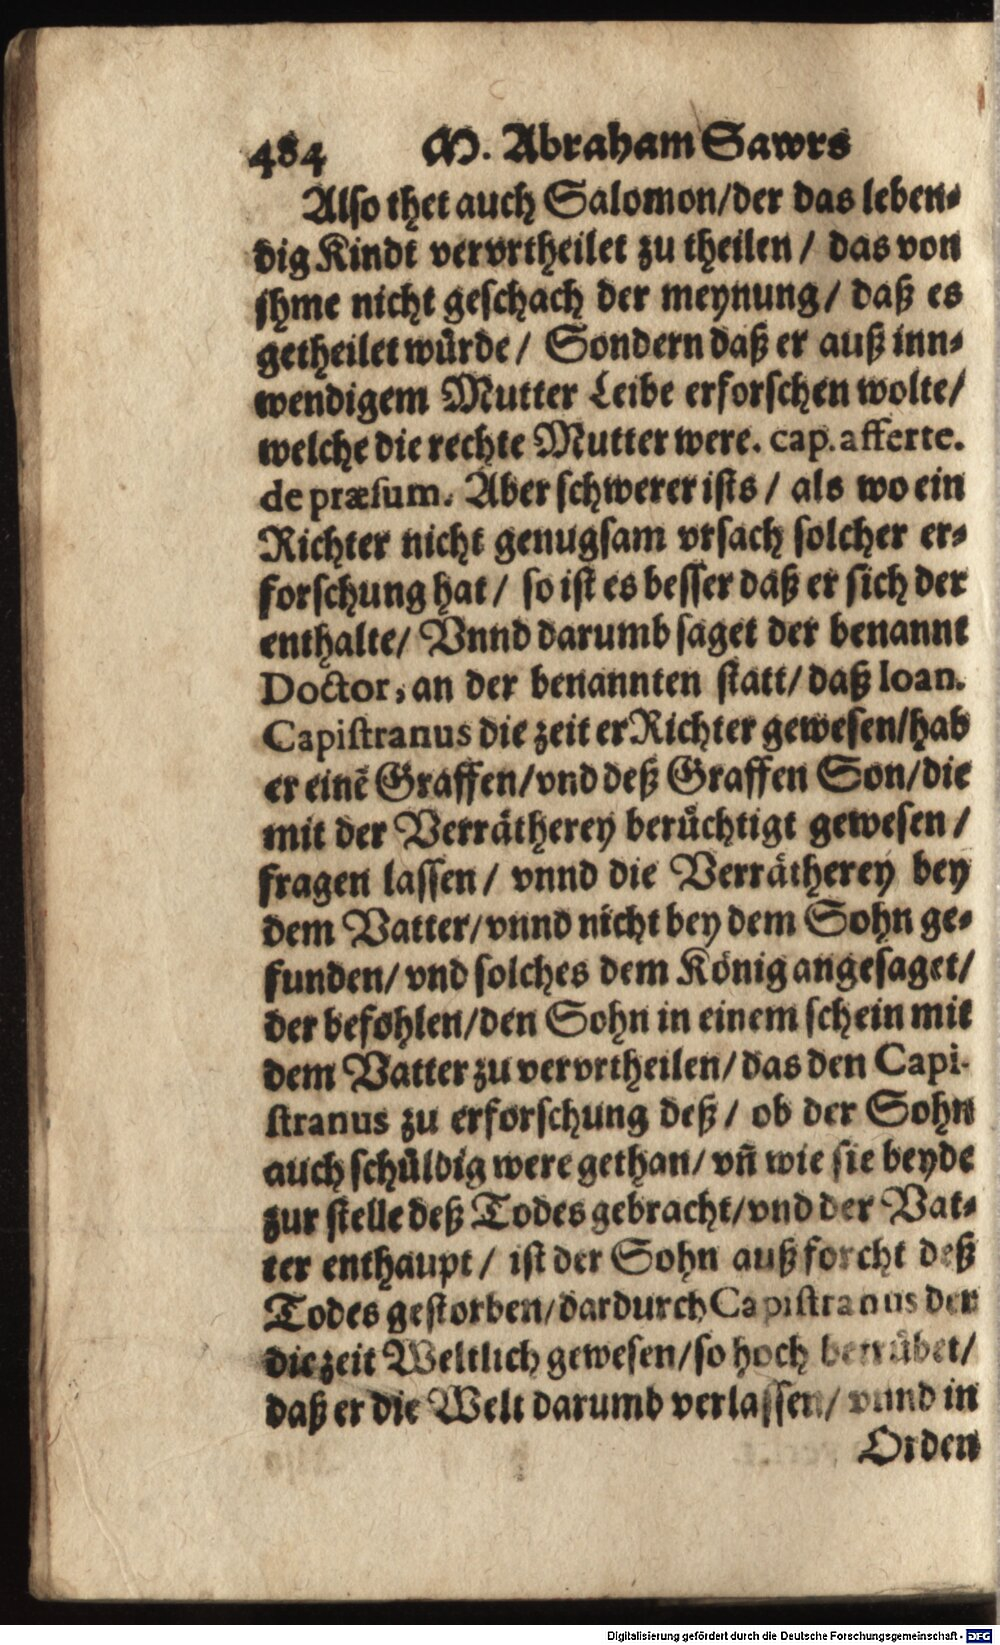 484 M. Abraham Sawrs
Also thet auch Salomon/der das leben-
dig Kindt vervrtheilet zu theilen / das von
jhme nicht geschach der meynung/ daß es
getheilet würde/ Sondern daß er auß inn-
wendigem Mutter Leibe erforschen wolte/
welche die rechte Mutter were. cap. afferte.
de præsum. Aber schwerer ists / als wo ein
Richter nicht genugsam vrsach solcher er-
forschung hat / so ist es besser daß er sich der
enthalte/ Vnnd darumb saget der benannt
Doctor, an der benannten statt/ daß Ioan.
Capistranus die zeit er Richter gewesen/hab
er einē Graffen/vnd deß Graffen Son/die
mit der Verrätherey berüchtigt gewesen /
fragen lassen / vnnd die Verrätherey bey
dem Vatter/vnnd nicht bey dem Sohn ge-
funden/ vnd solches dem König angesaget/
der befohlen/den Sohn in einem schein mit
dem Vatter zu vervrtheilen/ das den Capi-
stranus zu erforschung deß / ob der Sohn
auch schüldig were gethan/ vñ wie sie beyde
zur stelle deß Todes gebracht/vnd der Vat-
ter enthaupt / ist der Sohn auß forcht deß
Todes gestorben/dardurch Capistranus der
die zeit Weltlich gewesen/so hoch betrübet/
daß er die Welt darumb verlassen/ vnnd in
Orden
Digitalisierung gefördert durch die Deutsche Forschungsgemeinschaft - DFG